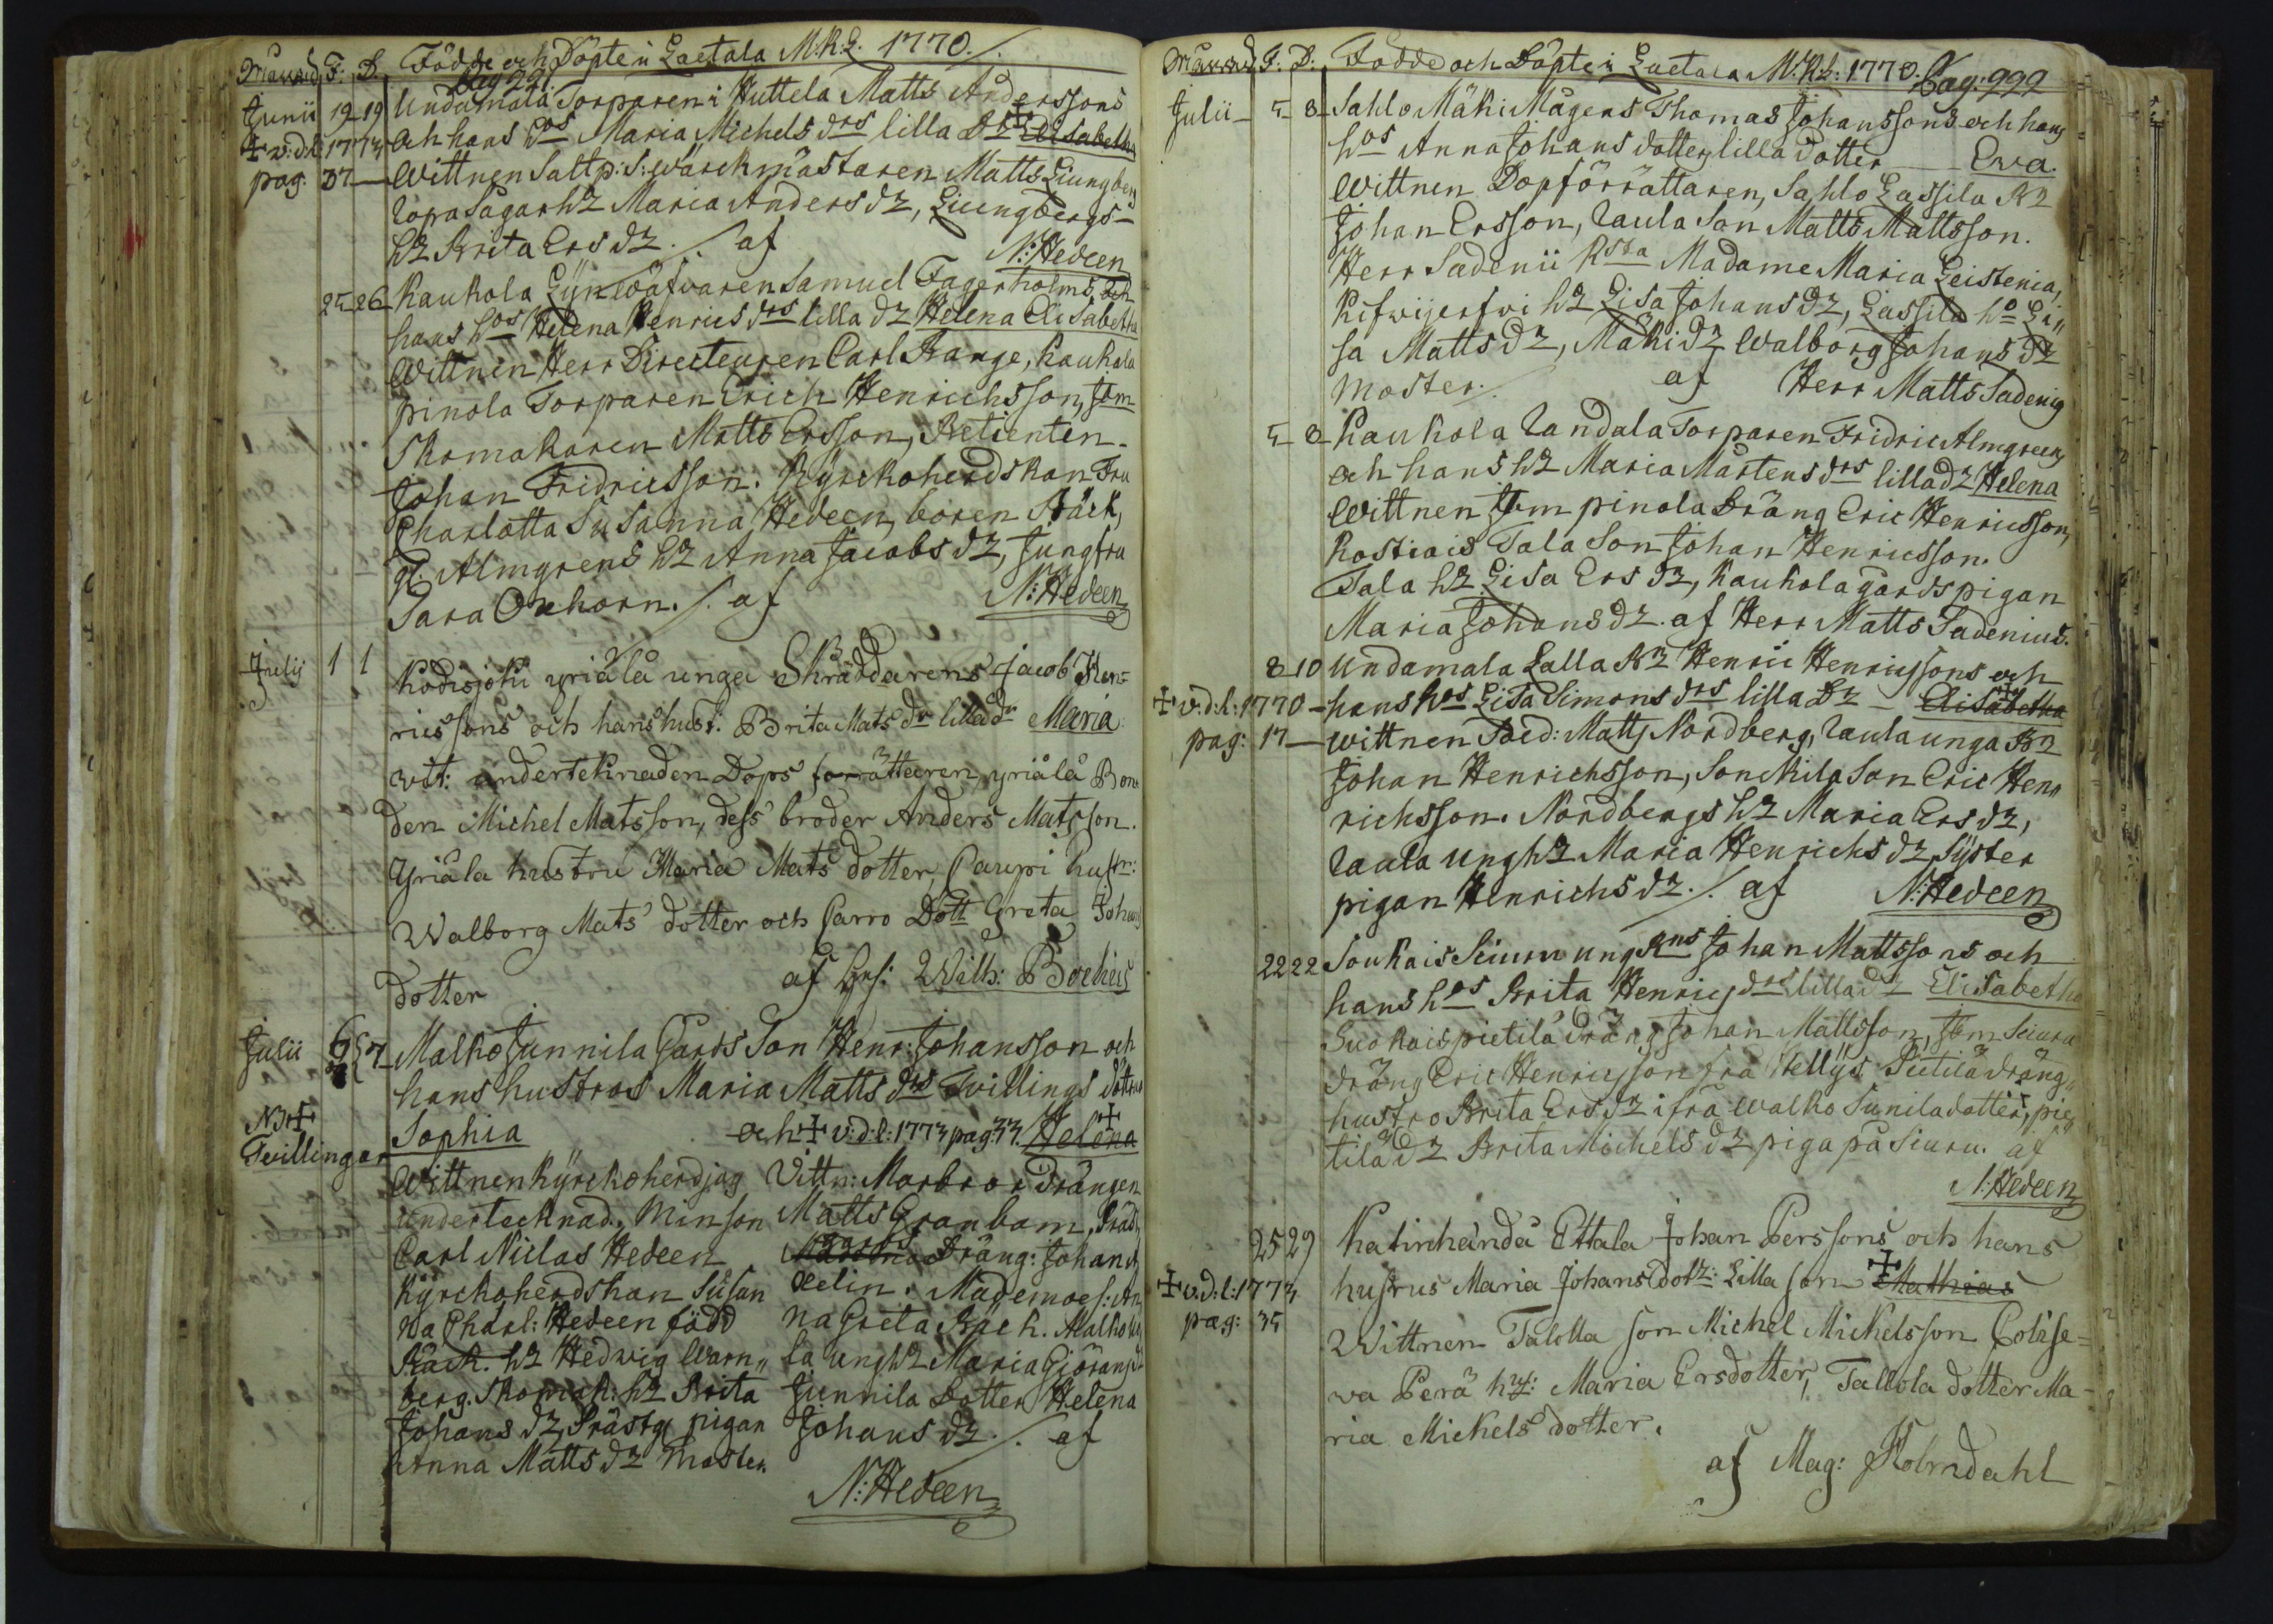 Månad F: D. Födde och Döpte i Laitala M.K:L. 1770./.
Pag 221
Junii 19 19 Undamala Torparen i Huttela Matts Anderssons
✝ v:d:l 1773 och hans hos Maria Michels drs lilla Dr Elisabetha
pag. 37 Wittnen Saltp: S: wärckmästaren Matts Liungberg
Sagar hr Maria Anders dr, Liungbergs
hr Brita Ers dr ./. af N: Hedeen
25 26 Kaukola Samuel Fagerholms och
hans hos Helena Henrics drs lilla dr Helena Elisabetha
Wittnen Herr Directeuren Carl Bange, Kaukola
pinola Torparen Erich Henrichsson, Jäm
Skomakaren Matts Ersson, Betienten
Johan Fridricsson. Kyrckoherdskan Fru
Charlotta Susanna Hedeen, boren Bäck,
gl. Almgrens hr Anna Jacobs dr, Jungfru
Sara Oxhorn ./. af N: Hedeen
Julij 1 1 Kodisjoki yriälä unga Skräddarens Jacob Hen-
rics sons och hans hust: Brita Mats dr lilla dr Maria
wit: underteknaden Dops forrätteren, yriälä Bon-
den Michel Matsson, dess broder Anders Matsson.
Yriäla hustru Maria Mats dotter, Paupi hustr:
Walborg Mats dotter och Parro Dott Greta Johans
dotter af Wilh: Boelius
Julii 6 7 Malko Junnila Gårds Son Henr: Johansson och
hans hustros Maria Matts drs Twillings döttrar
NB ✝ Sophia och ✝ v:d:l: 1773 pag: 33 Helena
Twillingar
Wittnen Kyrckoherd jag
undertecknad, Min son
Carl Niclas Hedeen
Kyrckoherdskan Susan
na Charl: Hedeen född
Bäck. hr Hedwig Warn„
berg. Skomak: hr Brita
Johans dr, Prästg pigan
Anna Matts dr Moster
Vittn: Morbror Drängen
Matts Granbom, Präst
gårds Dräng: Johan
Aelin. Mademoes: An
na Greta Bäck. Malko
la ungh hr Maria Giörans dr
Junnila Dotter Helena
Johans dr ./. af
N: Hedeen
Månad F: D: Födde och Döpte i Laitala M:K:L: 1770. Pag: 222
Julii 5 8 Sahlo Mäki Mågens Thomas Johanssons och hans
hos Anna Johans dotters lilla dotter Ewa.
Wittnen Dopförrättaren, Sahlo Lassila Br
Johan Ersson, Raula Son Matts Mattsson.
Herr Sadenii Madame Maria Leistenia,
hr Lisa Johans dr, Lassila ho Li„
sa Matts dr, Mäki dr Walborg Johans dr
Moster. af Herr Matts Sadenig
5 8 Kaukola Randala Torparen Fridric Almgreens
och hans hr Maria Mårtens drs lilla dr Helena
Wittnen Jäm pinola Dräng Eric Henricsson,
Kostiais Tala Son Johan Henricsson.
Tala hr Lisa Ers dr, Kaukola gårds pigan
Maria Johans dr. af Herr Matts Sadenius.
8 10 Undamala Lalla Br Henric Henricssons och
✝ v:d:l: 1770 hans hos Lisa Simons drs lilla Dr Elisabetha
pag: 17 Wittnen Matts Nordberg, Raula unga Br
Johan Henrichsson, Sonckila Son Eric Hen„
richsson. Nordbergs hr Maria Ers dr,
Raula ungh hr Maria Henrichs dr, Syster
pigan Henrichs dr ./. af N: Hedeen
22 22 Soukais Siuru ung Bns Johan Mattssons och
hans hos Brita Henrics drs lilla dr Elisabetha
Suokais pietilä dräng Johan Mattsson, Jäm Siuru
dräng Eric Henricsson frå Hellÿs Pietilä dräng„
hustro Brita Ers dr ifrå Walko Sunila dotter, pie
tilä dr Brita Michels dr piga på Siuru. af
N: Hedeen
25 29 Katinhända Ettala Johan Perssons och hans
✝ v:d:l: 1773 hustrus Maria Johans dotr: Lilla son Mathias
pag: 35 Wittnen Talolla son Michel Mickelsson Cobise-
wa Perä hu: Maria Ersdotter, Tallola dotter Ma-
ria Mickels dotter.
af Mag: Holmdahl